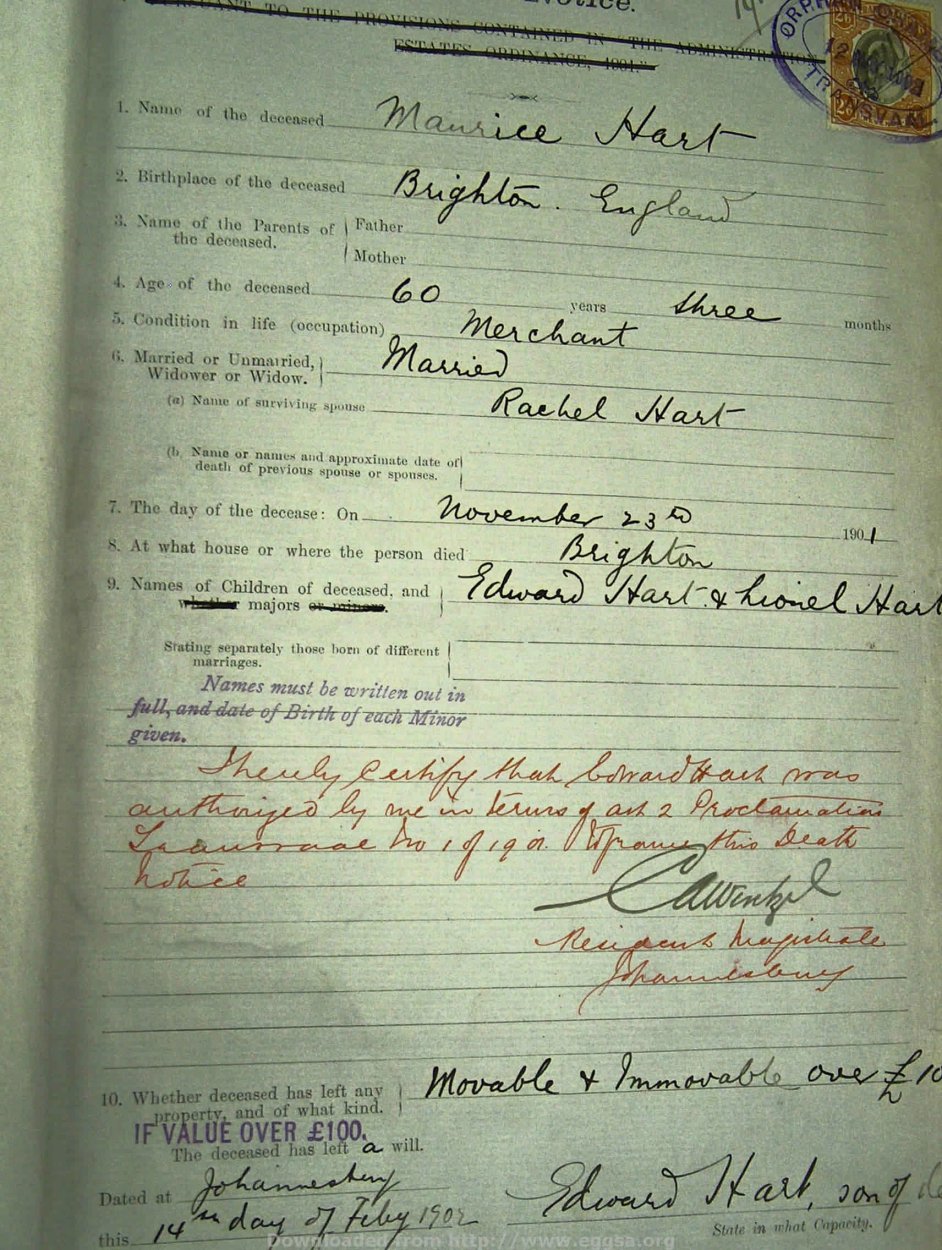 Notice.
PURSUANT TO THE PROVISIONS CONTAINED IN "THE ADMINISTRATION
ESTATES ORDINANCE, 1901."
ORPHAN
TRANSVAAL
1. Name of the deceased Maurice Hart
2. Birthplace of the deceased Brighton. England
3. Name of the Parents of the deceased. Father
Mother
4. Age of the deceased 60 years three months
5. Condition in life (occupation) Merchant
6. Married or Unmarried, Widower or Widow. Married
(a) Name of surviving spouse Rachel Hart
(b) Name or names and approximate date of
death of previous spouse or spouses.
7. The day of the decease: On November 23rd 1901
8. At what house or where the person died Brighton
9. Names of Children of deceased, and Edward Hart & Lionel Hart
whether majors or minors.
Stating separately those born of different
marriages.
Names must be written out in
full, and date of Birth of each Minor
given.
I hereby certify that Edward Hart was
authorized by me in terms of art 2 Proclamation
Transvaal No 1 of 190 to frame this Death
Notice
Resident Magistrate
Johannesburg
10. Whether deceased has left any Movable & Immovable over £10
property, and of what kind.
IF VALUE OVER £100.
The deceased has left a will.
Dated at Johannesburg
this 14th day of Feby 1902 Edward Hart, son of
State in what Capacity.
Downloaded from http://www.eggsa.org